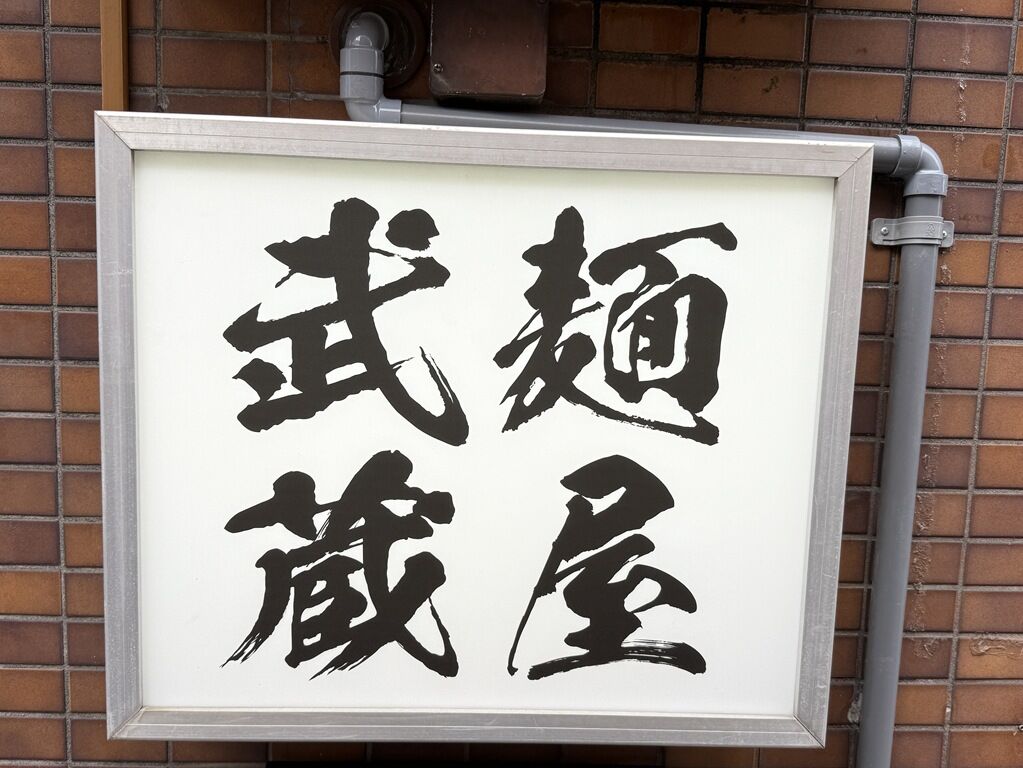 麺屋
武蔵